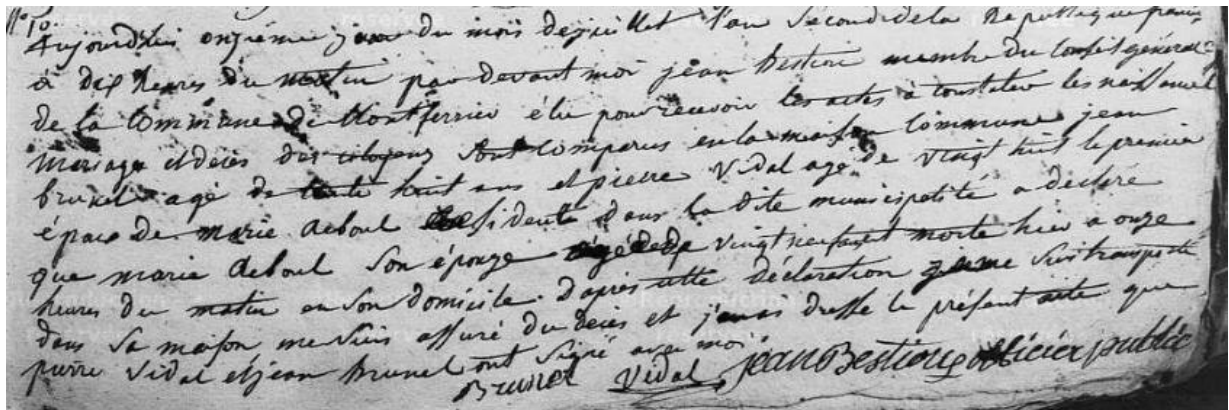 n° 10.
Aujourdhui onzieme jour du mois dejuillet l'an second dela Republique
a dix heures du matin par devant moi jean Bestion membre du Conseil general
de la Commune de Montferrier élu pour recevoir les actes a constater les naissances
mariage et deces des citoyens sont comparus en la maison Commune jean
brunel agé de trente huit ans et pierre Vidal agé de vingt huit le premier
épous de marie Reboul Residente dans la dite municipalité a declaré
que marie Reboul son épouze agéede vingt neuf morte hier a onze
heures du matin en son domicile. d'apres cette déclaration je me suis transporté
dans sa maison me suis assuré du deces et j'en ai dressé le présant acte que
pierre Vidal et jean Brunel ont signé avec moi
Brunel Vidal jean Bestion officier public